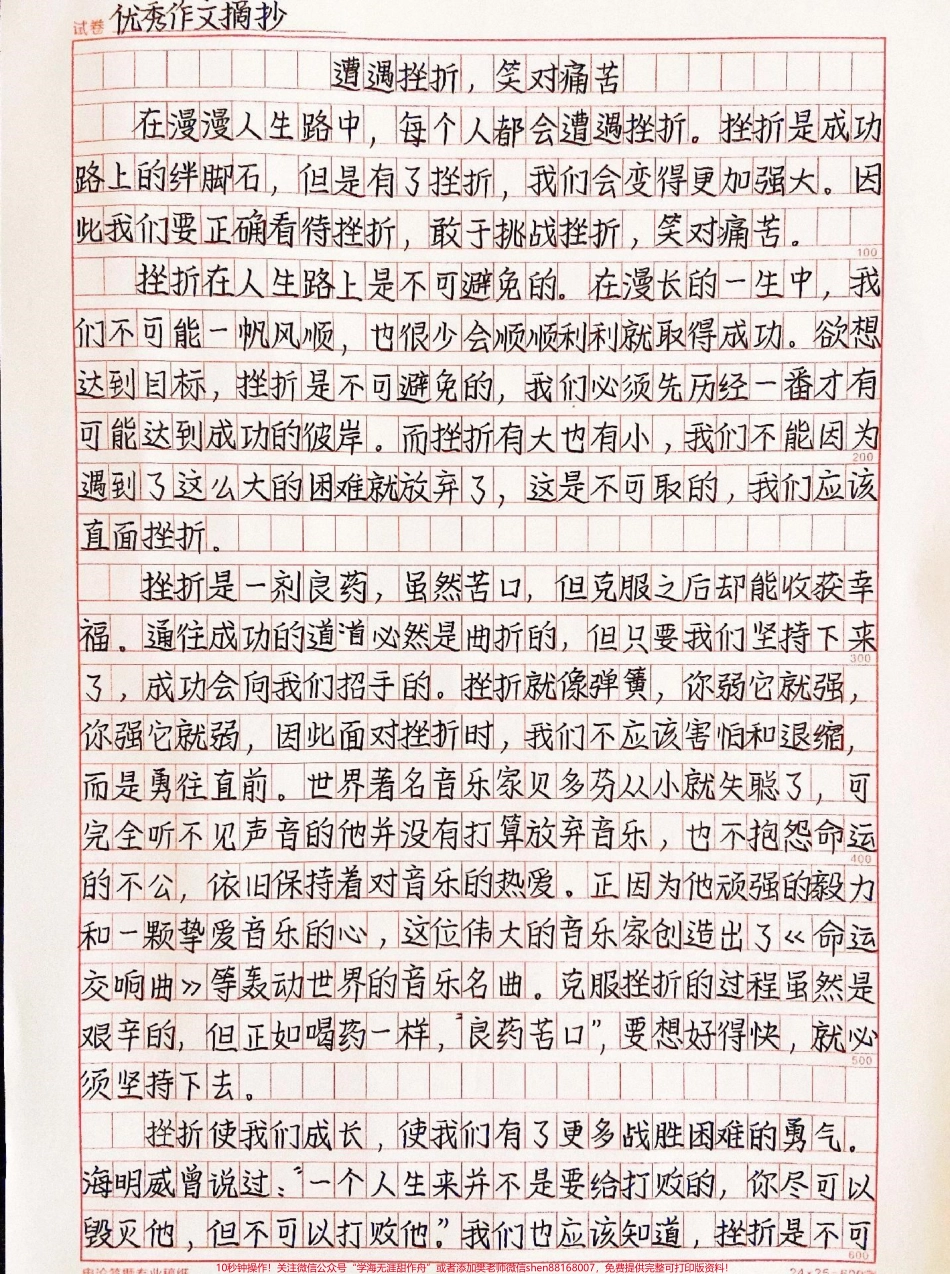 试卷 优秀作文摘抄
遭遇挫折，笑对痛苦
在漫漫人生路中，每个人都会遭遇挫折。挫折是成功
路上的绊脚石，但是有了挫折，我们会变得更加强大。因
此我们要正确看待挫折，敢于挑战挫折，笑对痛苦。
100
挫折在人生路上是不可避免的。在漫长的一生中，我
们不可能一帆风顺，也很少会顺顺利利就取得成功。欲想
达到目标，挫折是不可避免的，我们必须先历经一番才有
可能达到成功的彼岸。而挫折有大也有小，我们不能因为
200
遇到了这么大的困难就放弃了，这是不可取的，我们应该
直面挫折。
挫折是一剂良药，虽然苦口，但克服之后却能收获幸
福。通往成功的道道必然是曲折的，但只要我们坚持下来
300
了，成功会向我们招手的。挫折就像弹簧，你弱它就强，
你强它就弱，因此面对挫折时，我们不应该害怕和退缩，
而是勇往直前。世界著名音乐家贝多芬从小就失聪了，可
完全听不见声音的他并没有打算放弃音乐，也不抱怨命运
400
的不公，依旧保持着对音乐的热爱。正因为他顽强的毅力
和一颗挚爱音乐的心，这位伟大的音乐家创造出了《命运
交响曲》等轰动世界的音乐名曲。克服挫折的过程虽然是
艰辛的，但正如喝药一样，“良药苦口”，要想好得快，就必
500
须坚持下去。
挫折使我们成长，使我们有了更多战胜困难的勇气。
海明威曾说过：“一个人生来并不是要给打败的，你尽可以
毁灭他，但不可以打败他。”我们也应该知道，挫折是不可
600
10秒钟操作！关注微信公众号“学海无涯甜作舟”或者添加樊老师微信shen88168007，免费提供完整可打印版资料！